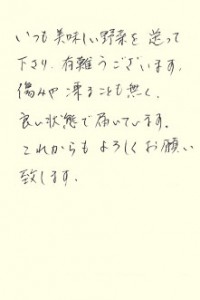 いつも美味しい野菜を送って
下さり、有難うございます。
傷みや凍ることも無く、
良い状態で届いています。
これからもよろしくお願い
致します。